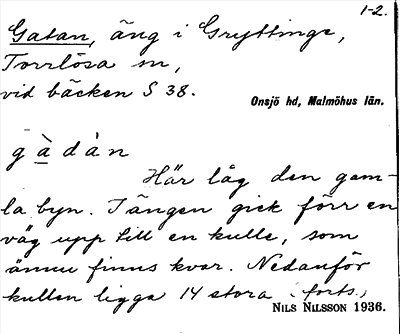 1-2.
Gatan, äng i Gryttinge,
Torrlösa sn,
vid bäcken S 38.
Onsjö hd, Malmöhus län.
g à d å n
Här låg den gam-
la byn. I ängen gick förr en
väg upp till en kulle, som
ännu finns kvar. Nedanför
kullen ligga 14 stora (forts.)
NILS NILSSON 1936.